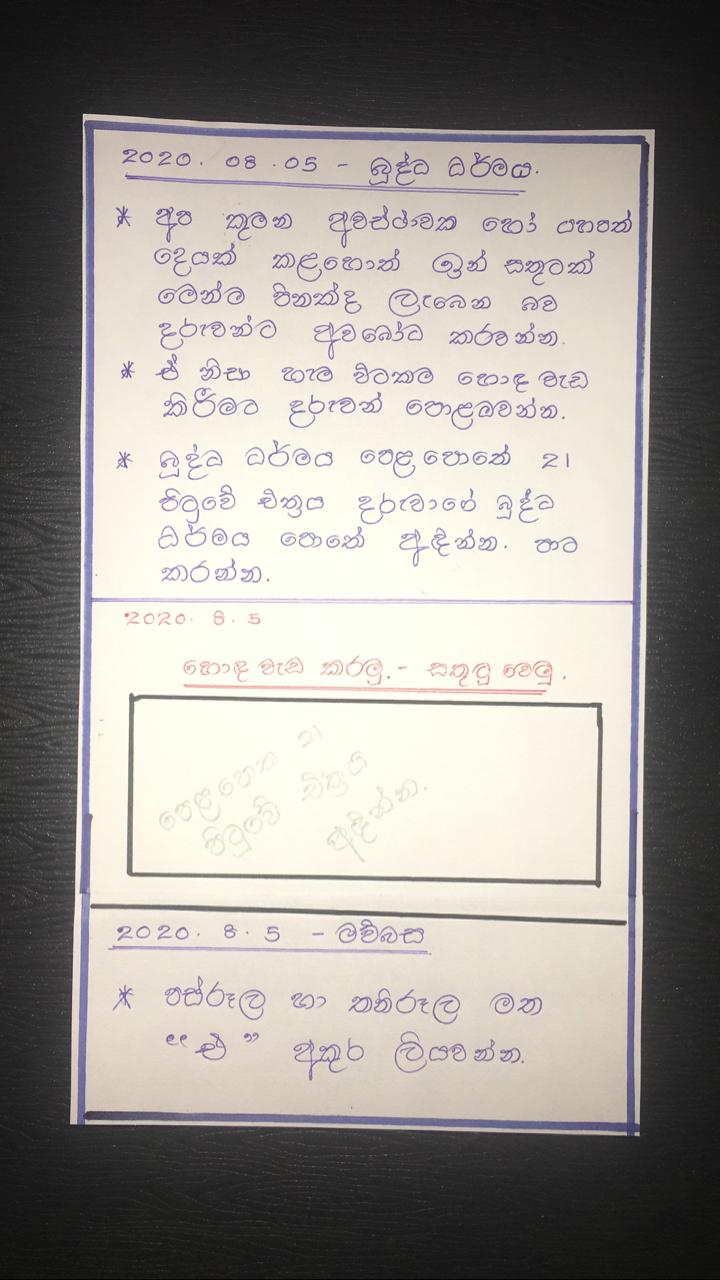 2020. 08. 05 - බුද්ධ ධර්මය.
* අප කුමන අවස්ථාවක හෝ යහපත්
දෙයක් කළහොත් ඉන් සතුටක්
මෙන්ම පිනක්ද ලැබෙන බව
දරුවන්ට අවබෝධ කරවන්න.
* ඒ නිසා හැම විටකම හොඳ වැඩ
කිරීමට දරුවන් පොළඹවන්න.
* බුද්ධ ධර්මය පෙළ පොතේ 21
පිටුවේ චිත්‍රය දරුවාගේ බුද්ධ
ධර්මය පොතේ අඳින්න. පාට
කරන්න.
2020. 8. 5
හොඳ වැඩ කරමු. - සතුටු වෙමු.
පෙළ පොත 21
පිටුවේ චිත්‍රය
අඳින්න.
2020. 8. 5 - මව්බස
* පස්රූල හා තනිරූල මත
"එ" අකුර ලියවන්න.